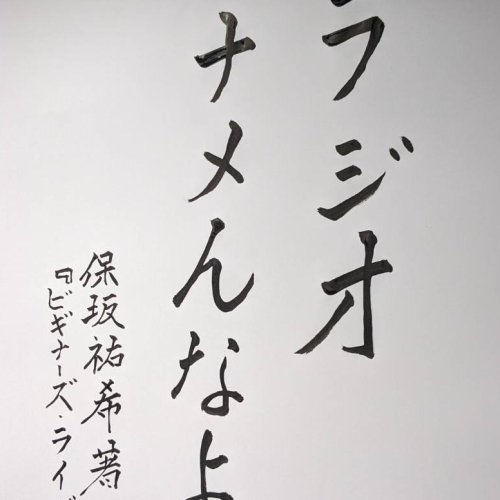 ラジオ
ナメんなよ
保坂祐希著
『ビギナーズ・ライ